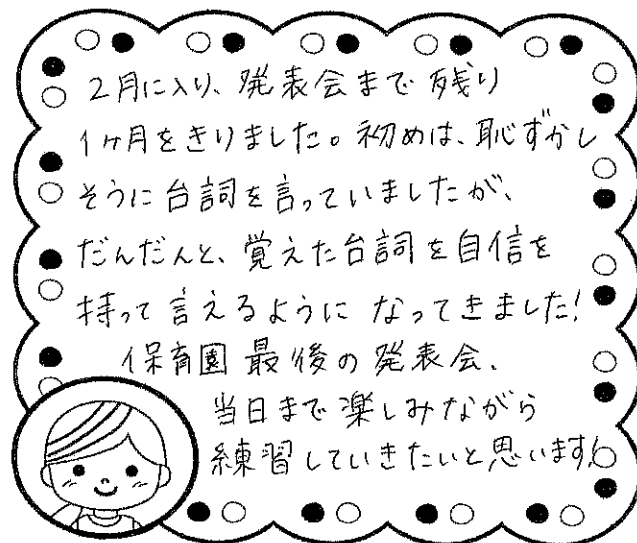 2月に入り、発表会まで残り
1ヶ月をきりました。初めは、恥ずかし
そうに台詞を言っていましたが、
だんだんと、覚えた台詞を自信を
持って言えるようになってきました!
保育園最後の発表会、
当日まで楽しみながら
練習していきたいと思います!